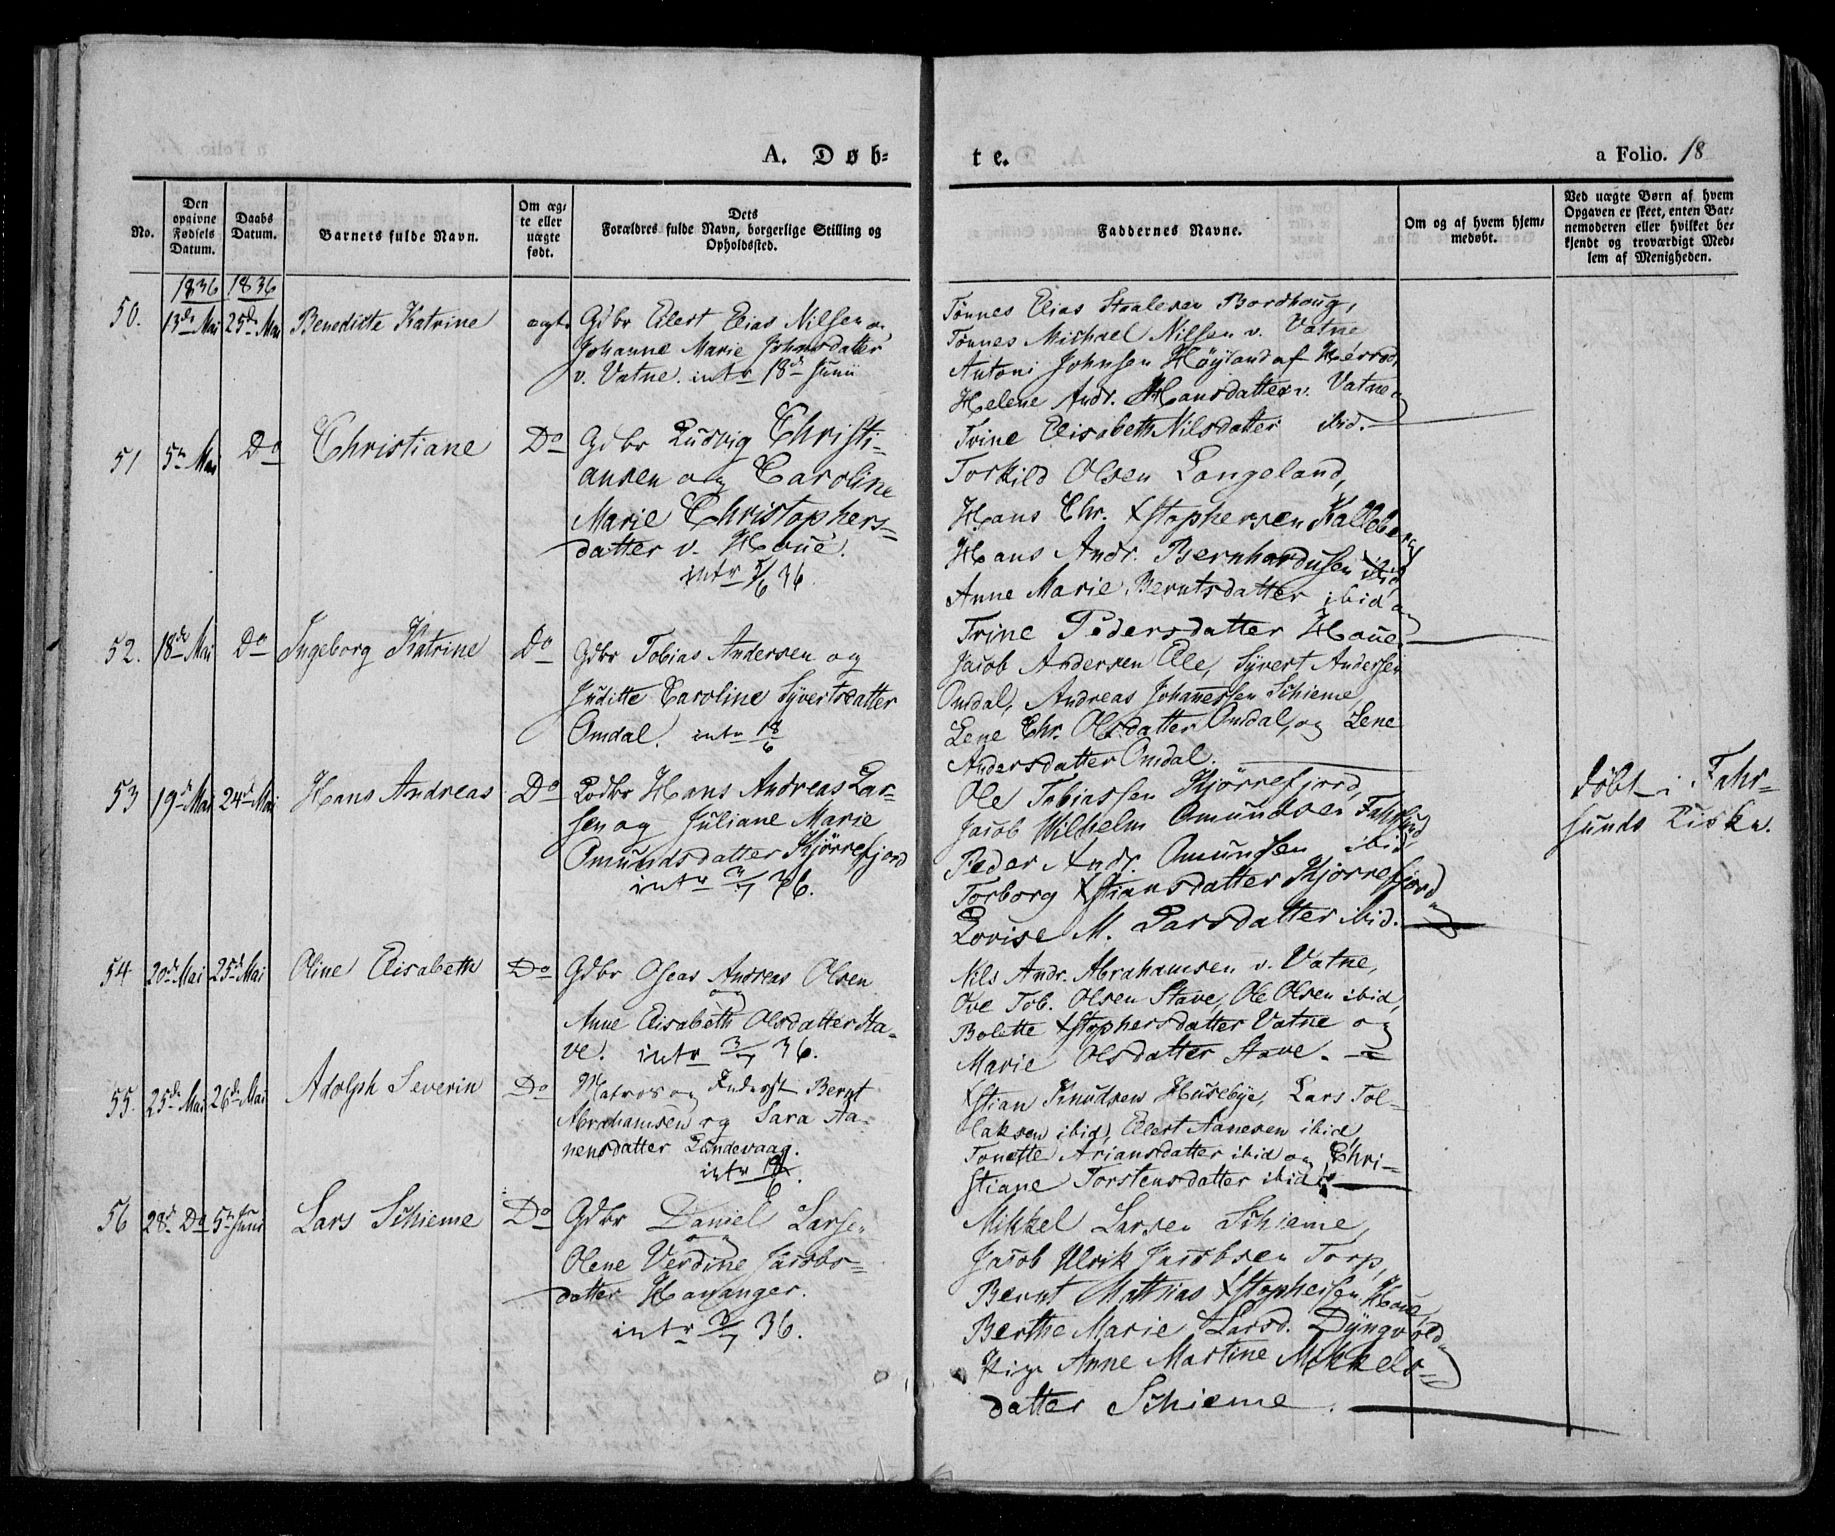 A. Døb-
te.
a Folio. 18
No.
Den opgivne Fødsels Datum.
Daabs Datum.
Barnets fulde Navn.
Om ægte eller uægte født.
Dets
Forældres fulde Navn, borgerlige Stilling og
Opholdssted.
Faddernes Navne.
Om og af hvem hjem-
medøbt.
Ved uægte Børn af hvem
Opgaven er skeet, enten Bar-
nemoderen eller hvilket be-
kjendt og troværdigt Med-
lem af Menigheden.
1836 1836
50. 13de Mai 25de Mai Benedicte Katrine ægte
Gdbr Eilert Elias Nilsen og
Johanne Marie Johnsdatter
v. Vatne. intr 18de Junii
Tønnes Elias Staalesen Bordhoug,
Tønnes Michael Nilsen v. Vatne
Antoni Johnsen Høyland af Herred
Helene Andr. Hansdatter v. Vatne og
Trine Elisabeth Nilsdatter ibid.
51 5te Mai Do Christiane Do
Gdbr Ludvig Christi-
ansen og Caroline
Marie Christophers-
datter v. Houe.
intr 5/6 36.
Torkild Olsen Langeland,
Hans Chr. Xstophersen Kalleberg
Hans Andr. Bernhardusen ibid
Anne Marie Berntsdatter ibid og
Trine Pedersdatter Houe
52. 18de Mai Do Ingeborg Katrine Do
Gdbr Tobias Andersen og
Juditte Caroline Syvertsdatter
Omdal. intr 18/6
Jacob Andersen Ele, Syvert Andersen
Omdal, Andreas Johannessen Schieme
Lene Chr. Olsdatter Omdal, og Lene
Andersdatter Omdal.
53 19de Mai 24de Mai Hans Andreas Do
Lodbr Hans Andreas Lar-
sen og Juliane Marie
Omundsdatter Kjørrefjord
intr 3/7 36.
Ole Tobiassen Kjørrefjord,
Jacob Wilhelm Omundsen Fahrsund
Peder Andr. Omundsen ibid
Torborg Xstiansdatter Kjørrefjord og
Lovise M. Larsdatter ibid.
døbt i Fahr-
sunds Kirke.
54 20de Mai 25de Mai Oline Elisabeth Do
Gdbr Oseas Andreas Olsen
og
Anne Elisabeth Olsdatter Sta-
ve. intr 3/7 36.
Nils Andr. Abrahamsen v. Vatne,
Ove Tob. Olsen Stave, Ole Olsen ibid,
Bolette Xstophersdatter Vatne og
Marie Olsdatter Stave.
55. 25de Mai 26de Mai Adolph Severin Do
Matros og Inderst Bernt
Abrahamsen og Sara Aa-
nensdatter Lundevaag.
intr
Xstian Knudsen Husebye, Lars Tol-
laksen ibid, Eilert Aanesen ibid,
Tonette Ariansdatter ibid og Chri-
stiane Torstensdatter ibid.
56 28de Do 5te Juni Lars Schieme Do
Gdbr Daniel Larsen
og
Olene Verdine Jacobs-
datter Hananger.
intr 3/7 36.
Mikkel Larsen Schieme,
Jacob Ulrik Jacobsen Torp,
Bernt Mathias Xstophersen Houe,
Berthe Marie Larsd. Dyngvold og
Pige Anne Martine Mikkels-
datter Schieme.